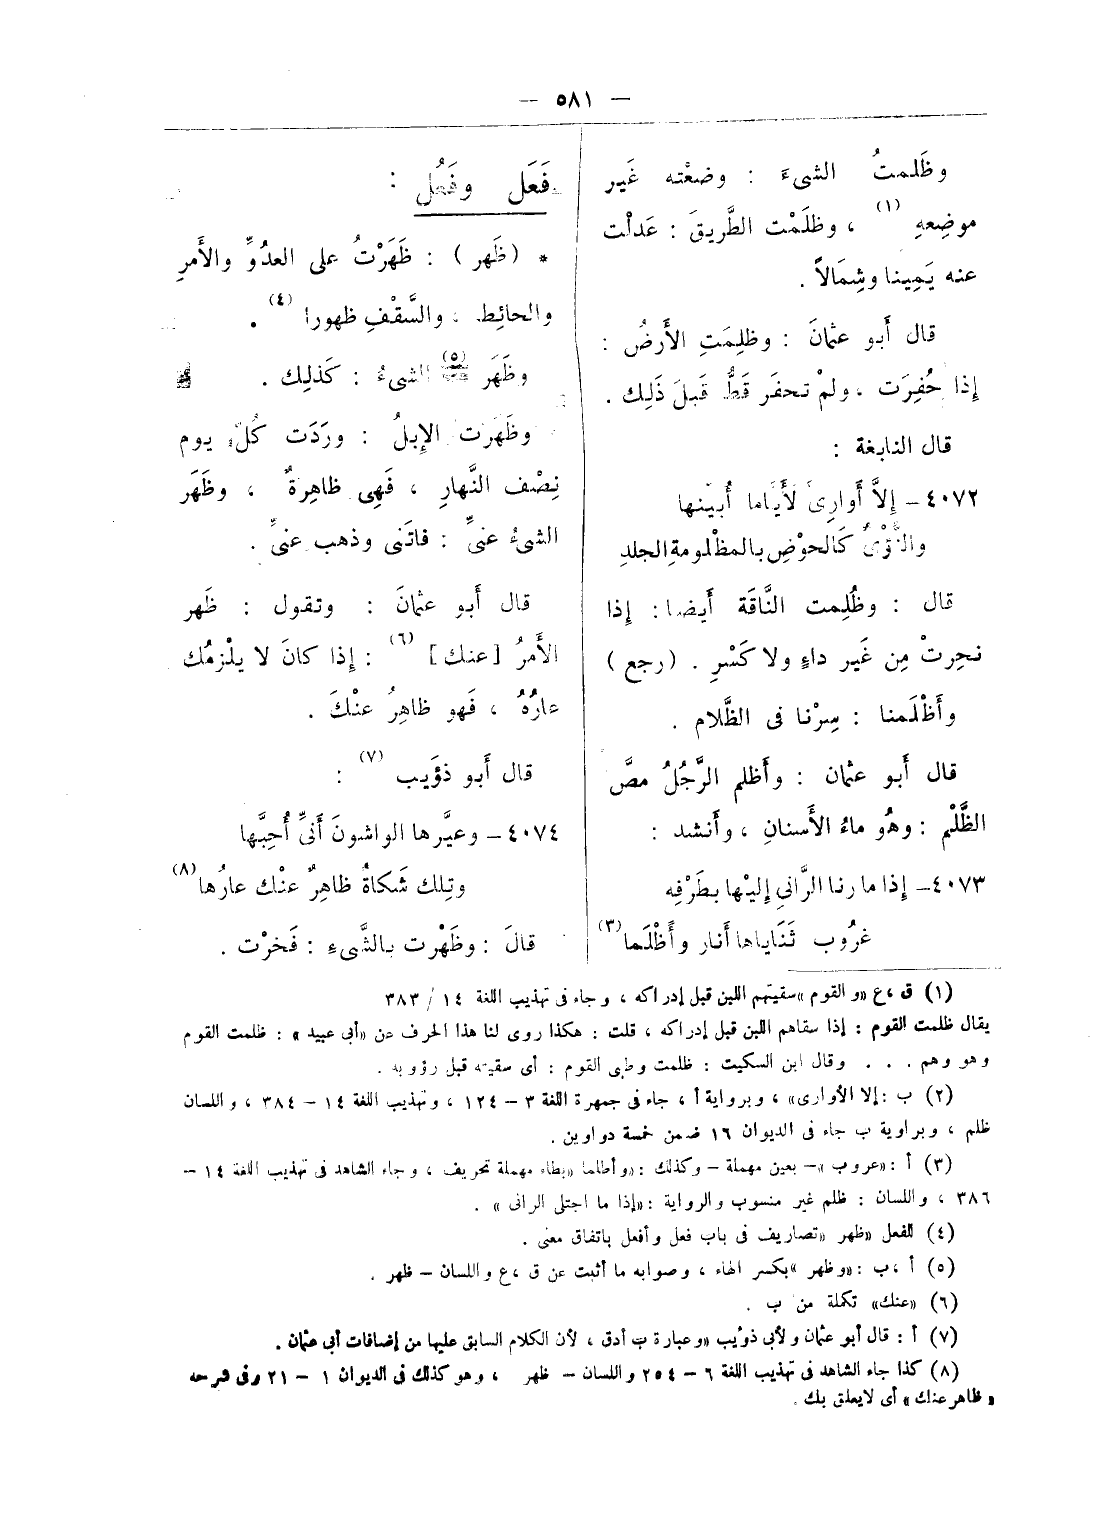 — ٥٨١ —
وظَلمتُ الشىءَ : وضعْته غَير
موضِعهِ (١) ، وظلَمْت الطَّريقَ : عَدلْت
عنه يَمِينا وشِمَالاً .
قال أَبو عثمانَ : وظلِمَتِ الأَرضُ :
إِذا حُفِرَت ، ولمْ تحفَر قَطُّ قَبلَ ذَلِك .
قال النابغة :
٤٠٧٢ – إِلاَّ أَوارِىَ لأْيًاما أُبيِّنها
والنُّؤْىُ كَالحوْضِ بالمظْلومةِ الجلدِ
قال : وظُلِمت النَّاقَة أَيضا : إِذا
نحِرتْ مِن غَير داءٍ ولا كَسْرٍ . (رجع)
وأَظْلَمنا : سِرْنا فى الظَّلام .
قال أَبو عثمان : وأَظلم الرَّجُلُ مصَّ
الظَّلْم : وهُو ماءُ الأَسنانِ ، وأَنشد :
٤٠٧٣ – إِذا ما رنا الرَّانِى إِليْها بطَرْفِه
غرُوب ثَنَاياها أَنار وأَظْلَما (٣)
فَعَل وفَعُل :
* (ظَهر) : ظَهَرْتُ على العدُوِّ والأَمرِ
والحائِط ، والسَّقْفِ ظهورا (٤) .
وظَهَر (٥) الشىءُ : كَذلِك .
وظَهَرَت الإِبلُ : ورَدَت كُلَّ يوم
نِصْف النَّهارِ ، فَهِى ظاهِرةٌ ، وظَهَر
الشىءُ عنىِّ : فاتَنى وذهب عنىِّ .
قال أَبو عثمانَ : وتقول : ظَهر
الأَمرُ [عنك] (٦) : إِذا كانَ لا يلْزمُك
عارُهُ ، فَهو ظاهِرُ عنْكَ .
قال أَبو ذؤَيب (٧) :
٤٠٧٤ – وعيَّرها الواشونَ أَنىِّ أُحِبَّها
وتِلك شَكاةٌ ظاهِرٌ عنْك عارُها (٨)
قالَ : وظَهْرت بالشَّىءِ : فَخرْت .
(١) ق ، ع «و القوم» سقيتهم اللبن قبل إدراكه ، وجاء فى تهذيب اللغة ١٤ / ٣٨٣
يقال ظلمت القوم : إذا سقاهم اللبن قبل إدراكه ، قلت : هكذا روى لنا هذا الحرف عن «أبى عبيد» : ظلمت القوم
وهو وهم . . . وقال ابن السكيت : ظلمت وطبى القوم : أى سقيته قبل رؤوبه .
(٢) ب : إلا الأوارى» ، وبرواية أ ، جاء فى جمهرة اللغة ٣ – ١٢٤ ، وتهذيب اللغة ١٤ – ٣٨٤ ، واللسان
ظلم ، وبراوية ب جاء فى الديوان ١٦ ضمن خمسة دواوين .
(٣) أ : «عروب» – بعين مهملة – وكذلك : «وأطلما «بطاء مهملة تحريف ، وجاء الشاهد فى تهذيب اللغة ١٤ –
٣٨٦ ، واللسان : ظلم غير منسوب والرواية : «إذا ما اجتلى الرانى» .
(٤) للفعل «ظهر «تصاريف فى باب فعل وأفعل باتفاق معنى .
(٥) أ ، ب : «وظهر» بكسر الهاء ، وصوابه ما أثبت عن ق ، ع واللسان – ظهر .
(٦) «عنك» تكملة من ب .
(٧) أ : قال أبو عثمان ولأبى ذؤيب «وعبارة ب أدق ، لأن الكلام السابق عليها من إضافات أبى عثمان .
(٨) كذا جاء الشاهد فى تهذيب اللغة ٦ – ٢٥٤ واللسان – ظهر ، وهو كذلك فى الديوان ١ – ٢١ وفى شرحه
«ظاهر عنك» أى لا يعلق بك .